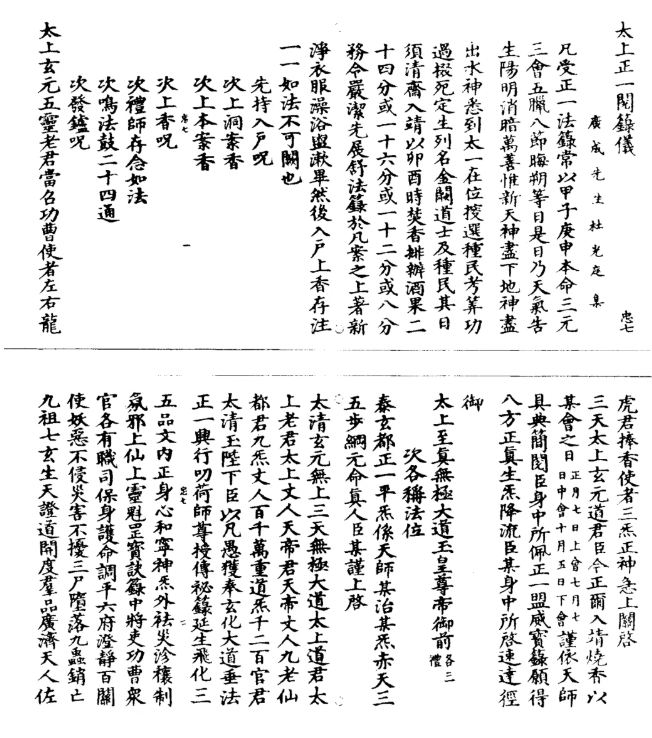 太上正一閱籙儀
忠七
廣成先生杜光庭集
凡受正一法籙常以甲子庚申本命三元
三會五臘八節晦朔等日是日乃天氣告
生陽明消暗萬善惟新天神盡下地神盡
出水神悉到太一在位挍選種民考筭功
過掇死定生列名金闕道士及種民其日
須清齋入靖以卯酉時焚香排辦酒果二
十四分或一十六分或一十二分或八分
務令嚴潔先展舒法籙於几案之上著新
淨衣服澡浴盥漱畢然後入戶上香存注
一一如法不可闕也
先持入戶呪
次上洞案香
次上本案香
忠七
一
次上香呪
次禮師存念如法
次鳴法鼓二十四通
次發鑪呪
太上玄元五靈老君當召功曹使者左右龍
虎君捧香使者三炁正神急上關啓
三天太上玄元道君臣今正爾入靖燒香以
某會之日正月七日上會七月七日中會十月五日下會謹依天師
具典簡閱臣身中所佩正一盟威寳籙願得
八方正真生炁降流臣某身中所啓速達徑
御
太上至真無極大道玉皇尊帝御前各三禮
次各稱法位
泰玄都正一平炁係天師某治某炁赤天三
五步綱元命真人臣某謹上啓
太清玄元無上三天無極大道太上道君太
上老君太上丈人天帝君天帝丈人九老仙
都君九炁丈人百千萬重道炁千二百官君
太清玉陛下臣以凡愚獲奉玄化大道垂法
正一興行叨荷師尊授傳祕籙延生飛化三
忠七
二
五品文内正身心和寧神炁外祛災沴穰制
氛邪上仙上靈魁罡寳訣籙中將吏功曹衆
官各有職司保身護命調平六府澄靜百關
使妖惡不侵災害不擾三尸墮落九蟲銷亡
九祖七玄生天證道開度羣品廣濟天人佐